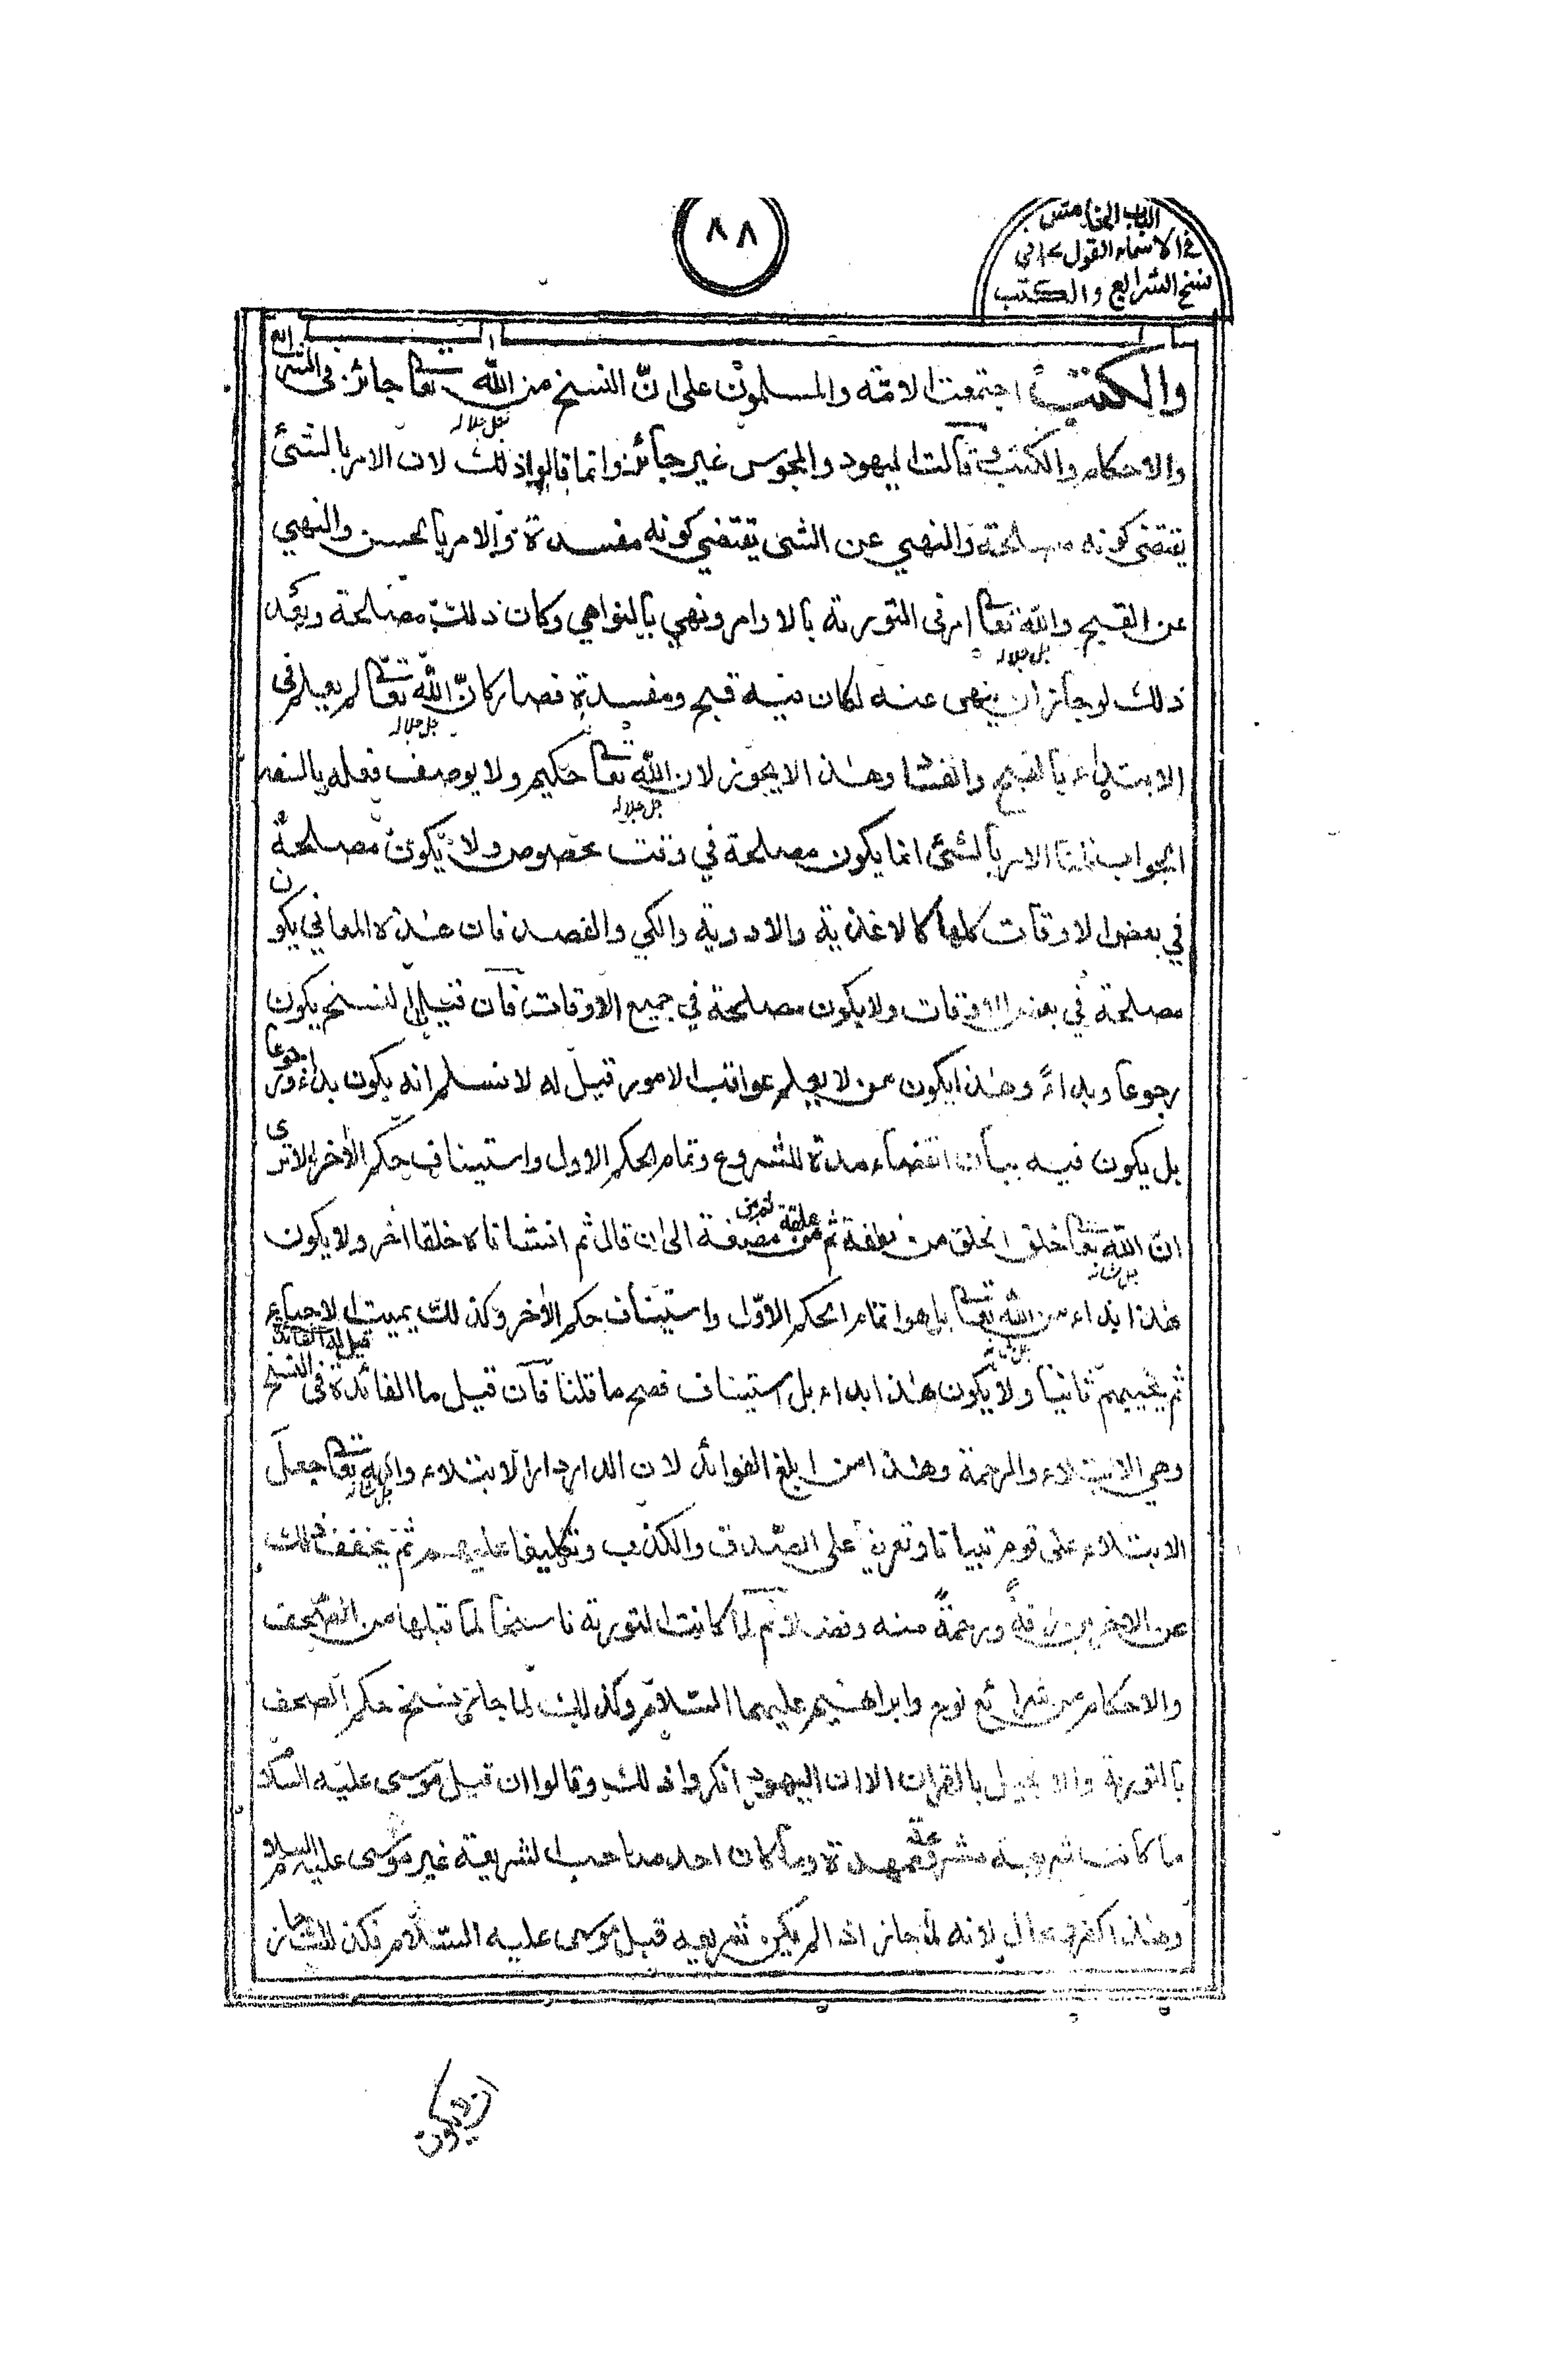 ٨٨
الباب الخامس
في الاسماء القول في
نسخ الشرايع والكتب
والكتب اجتمعت الامّة والمسلمون على انّ النسخ من اللّه تعا جل جلاله جائز في الشرائع
والاحكام والكتب وقالت اليهود والمجوس غير جائز وانما قالوا ذلك لان الامر بالشئ
يقتضى كونه مصلحة والنهي عن الشئ يقتضي كونه مفسدة والامر بالحسن والنهي
عن القبيح واللّه تعا جل جلاله امر في التورىة بالاوامر ونهي بالنواهي وكان ذلك مصلحة وبعد
ذلك لو جاز ان ينهى عنه لكان فيه قبح ومفسدة فصار كانّ اللّه تعا جل جلاله لم يعلم في
الابتداء بالقبح وهذا لا يجوز لان اللّه تعا جل جلاله حكيم ولا يوصف فعله بالسفه
الجواب قلنا الامر بالشئ انما يكون مصلحة في وقت مخصوص ولا يكون مصلحة
في بعض الاوقات كلها كالاغذية والادوية والكي والفصد فان هذه المعاني يكون
مصلحة في بعض الاوقات ولا يكون مصلحة في جميع الاوقات فان قيل النسخ يكون
رجوعا وبداءً وهذا يكون ممن لا يعلم عواقب الامور قيل له لا نسلم انه يكون بداء ورجوعا
بل يكون فيه بيان انقضاء مدة المشروع وتمام الحكم الاول واستيناف حكم الاخر الا ترى
انّ اللّه تعا جل شانه خلق الخلق من نطفة ثم من علقة ثم من مضغة الى ان قال ثم انشاناه خلقا اخر ولا يكون
هذا بداء من اللّه تعا جل شانه بل هو اتمام الحكم الاوّل واستيناف حكم الاخر وكذلك يميت الاحياء
ثم يحييهم ثانيا ولا يكون هذا بداء بل استيناف فصح ما قلنا فان قيل ما الفائدة في النسخ قيل له الفائدة
وهي الابتلاء والرحمة وهذا من ابلغ الفوائد لان الدار دار الابتلاء واللّه تعا جل شانه جعل
الابتلاء على قوم على الصدق والكذب وتكليفا عليهم ثم يخفف ذلك
عن الاخرين رافةً ورحمةً منه وفضلا ثم لما كانت التورىة ناسخا لما قبلها من الصحف
والاحكام من شرائع نوح وابراهيم عليهما السلام وكذلك لما جاز نسخ حكم الصحف
بالتورىة والانجيل بالقران الا ان اليهود انكروا ذلك وقالوا ان قبل موسى عليه السلام
ما كانت شريعة ممهدة وما كان احد صاحب الشريعة غير موسى عليه السلام
وهذا كفر محال لانه لما جاز ان لم يكن شريعه قبل موسى عليه السلام فكذلك جاز
ان لا يكون